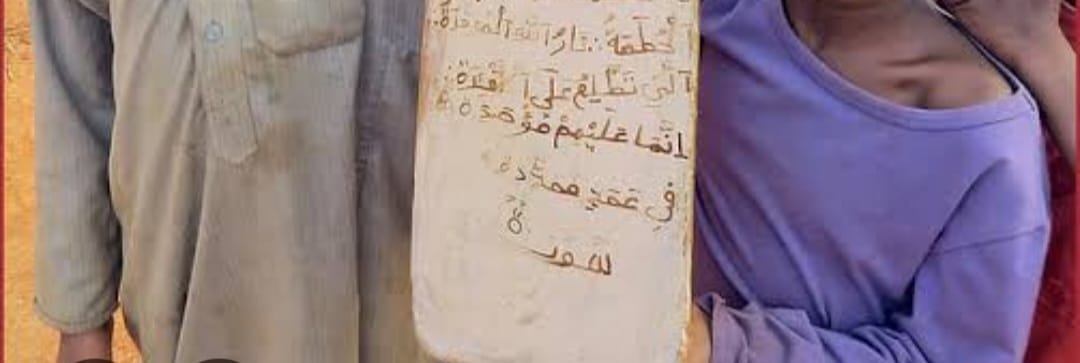 الْحُطَمَةُ نَارُ اللَّهِ الْمُوقَدَةُ
الَّتِي تَطَّلِعُ عَلَى
اِنَّهَا عَلَيْهِمْ مُؤْصَدَةٌ
فِي عَمَدٍ مُمَدَّدَةٍ